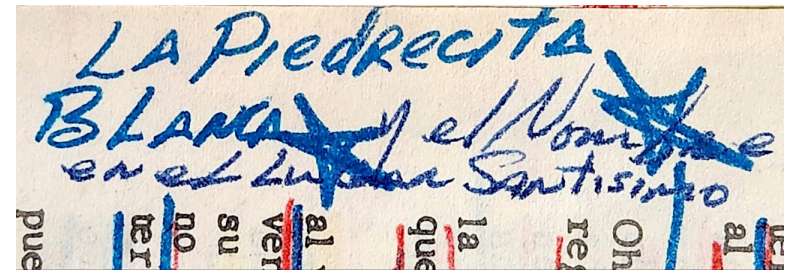 LA PiedRecitA
BLANCA y el Nombre
en el Lugar Santisimo
pue
ter
no
su
ver
al
que
la
reg
Oh
al